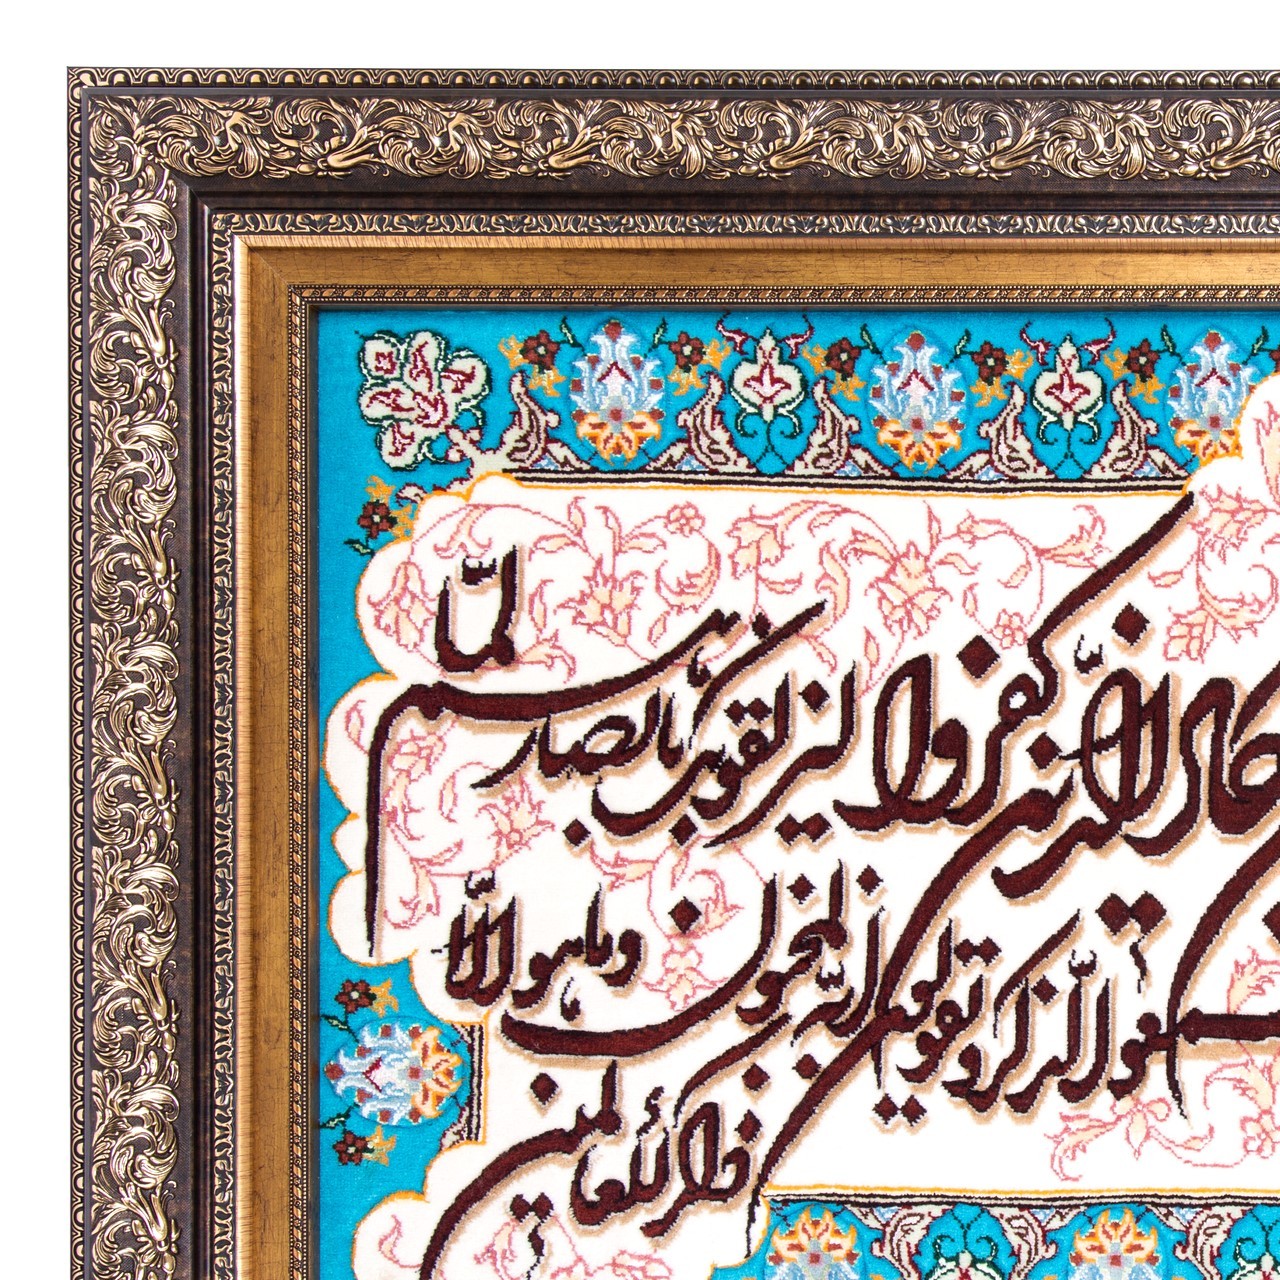 كاد الذين كفروا ليزلقونك بأبصارهم لما
سمعوا الذكر ويقولون إنه لمجنون وما هو إلا
ذكر للعالمين